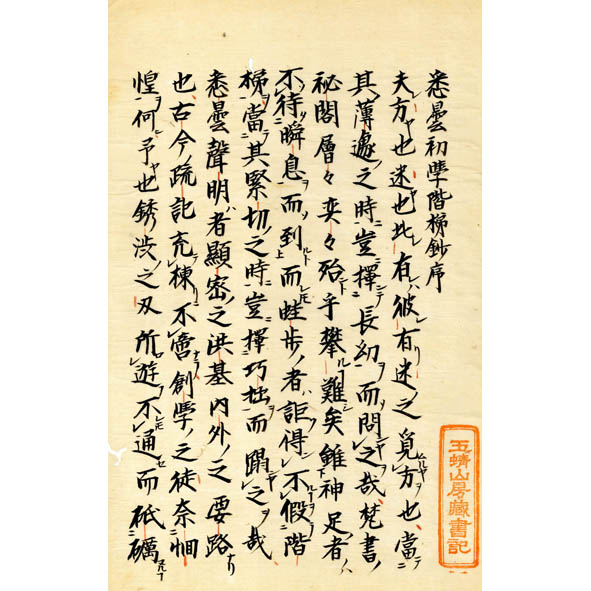 悉曇初學階梯鈔序
夫方也迷也此有彼有迷之覓方也當
其薄邊之時豈擇長幼而問之哉梵書
秘閣層々奕々殆乎攀難矣雖神足者
不待瞬息而到而蛙步者詎得不假階
梯當其緊切之時豈擇巧拙而躡之哉
悉曇聲明者顯密之洪基内外之要路
也古今疏記充棟不啻創學之徒奈
惶何予也銹渋之刃所遊不通而砥礪
玉
山房藏書記